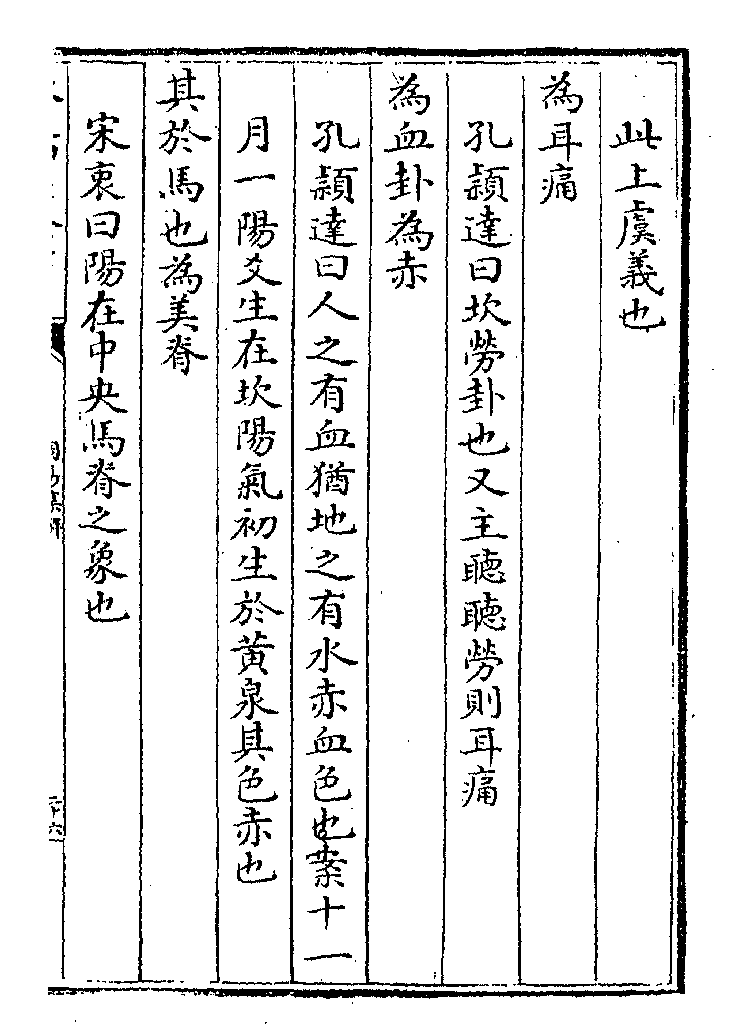 此上虞義也
為耳痛
孔穎達曰坎勞卦也又主聽聽勞則耳痛
為血卦為赤
孔穎達曰人之有血猶地之有水赤血色也案十一
月一陽爻生在坎陽氣初生於黃泉其色赤也
其於馬也為美脊
宋衷曰陽在中央馬脊之象也